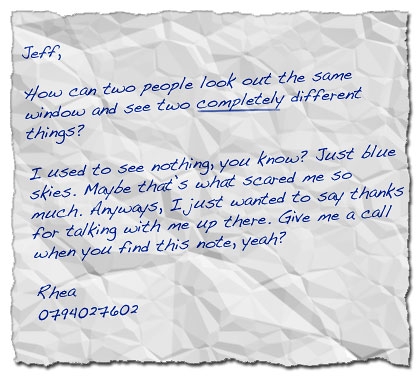 Jeff,
How can two people look out the same
window and see two completely different
things?
I used to see nothing, you know? Just blue
skies. Maybe that's what scared me so
much. Anyways, I just wanted to say thanks
for talking with me up there. Give me a call
when you find this note, yeah?
Rhea
0794027602